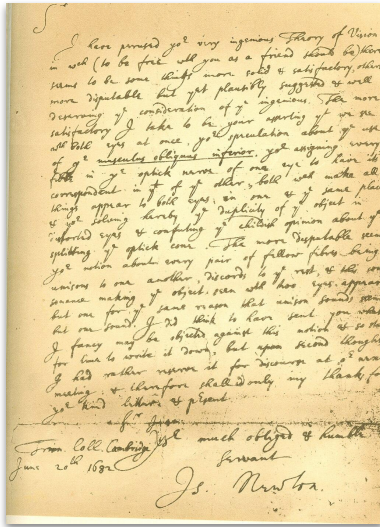 Sr
I have perused yor very ingenious Theory of Vision
in wch (to be free wth you as a friend should be) there
seems to be some things more solid & satisfactory, others
more disputable but yet plausibly suggested & well
deserving ye consideration of ye ingenious. The more
satisfactory I take to be your asserting yt we see
wth both eyes at once, yor speculation about ye use
of ye musculus obliquus inferior, yor assigning every
fibre in ye optick nerve of one eye to have its
correspondent in yt of ye other, both wch make all
things appear to both eyes in one & ye same place
& yor solving hereby ye duplicity of ye object in
distorted eyes & confuting ye childish opinion about ye
splitting ye optick cone. The more disputable seems
yor notion about every pair of fellow fibres being
unisons to one another, discords to ye rest, & this con-
sonance making ye object seen wth two eyes appear
but one for ye same reason that unison sounds seem
but one sound. I did think to have sent you what
I fancy may be objected against this notion & so
for time to write it down, but upon second thoughts
I had rather reserve it for discourse at or next
meeting & therefore shall add only my thanks for
yor kind letter & present.
Sr
Trin. Coll. Cambridge Yor much obliged & humble
June 20th 1682 Servant
Is. Newton.